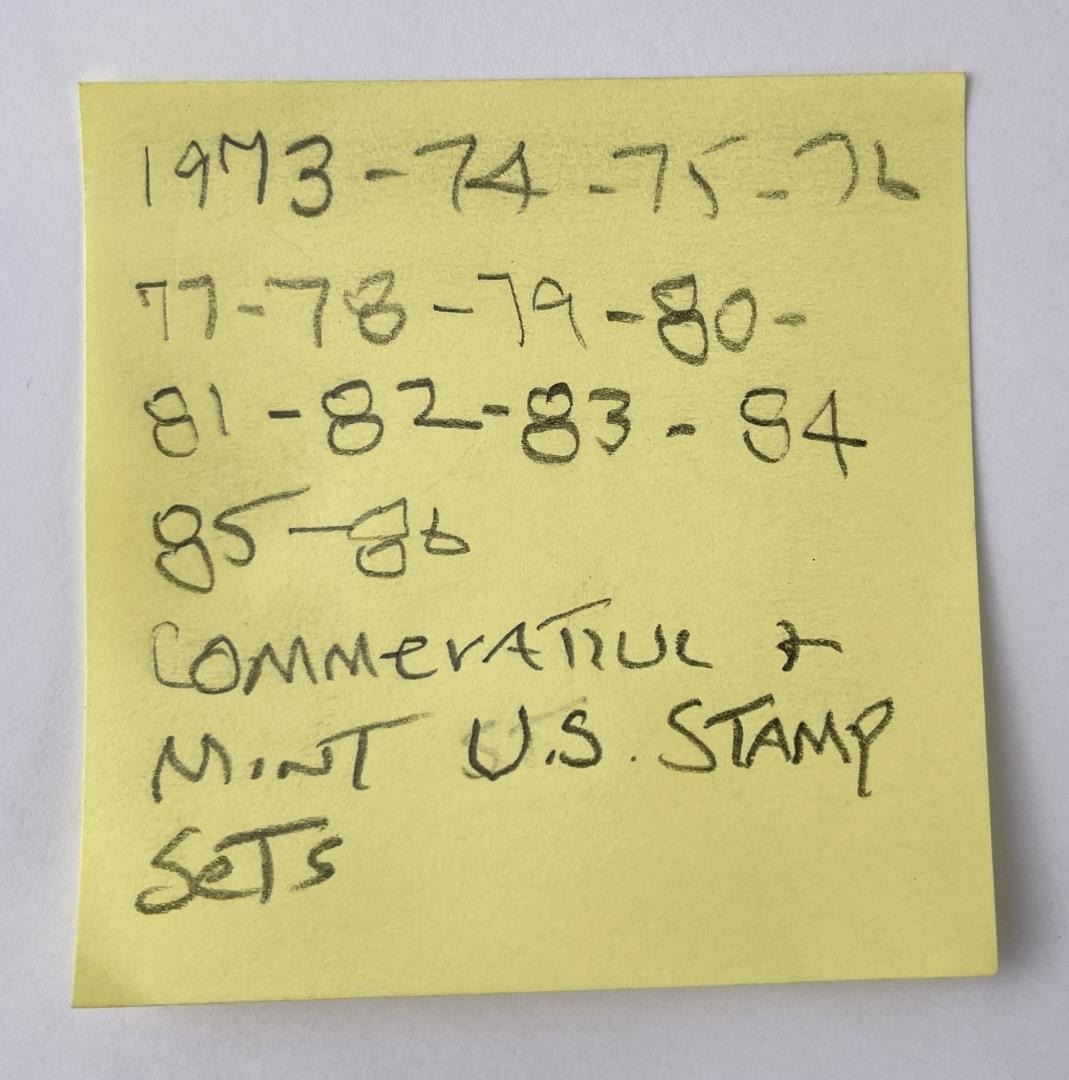 1973 - 74 - 75 - 76
77 - 78 - 79 - 80 -
81 - 82 - 83 - 84
85 - 86
COMMERATIVE &
MINT U.S. STAMP
SETS